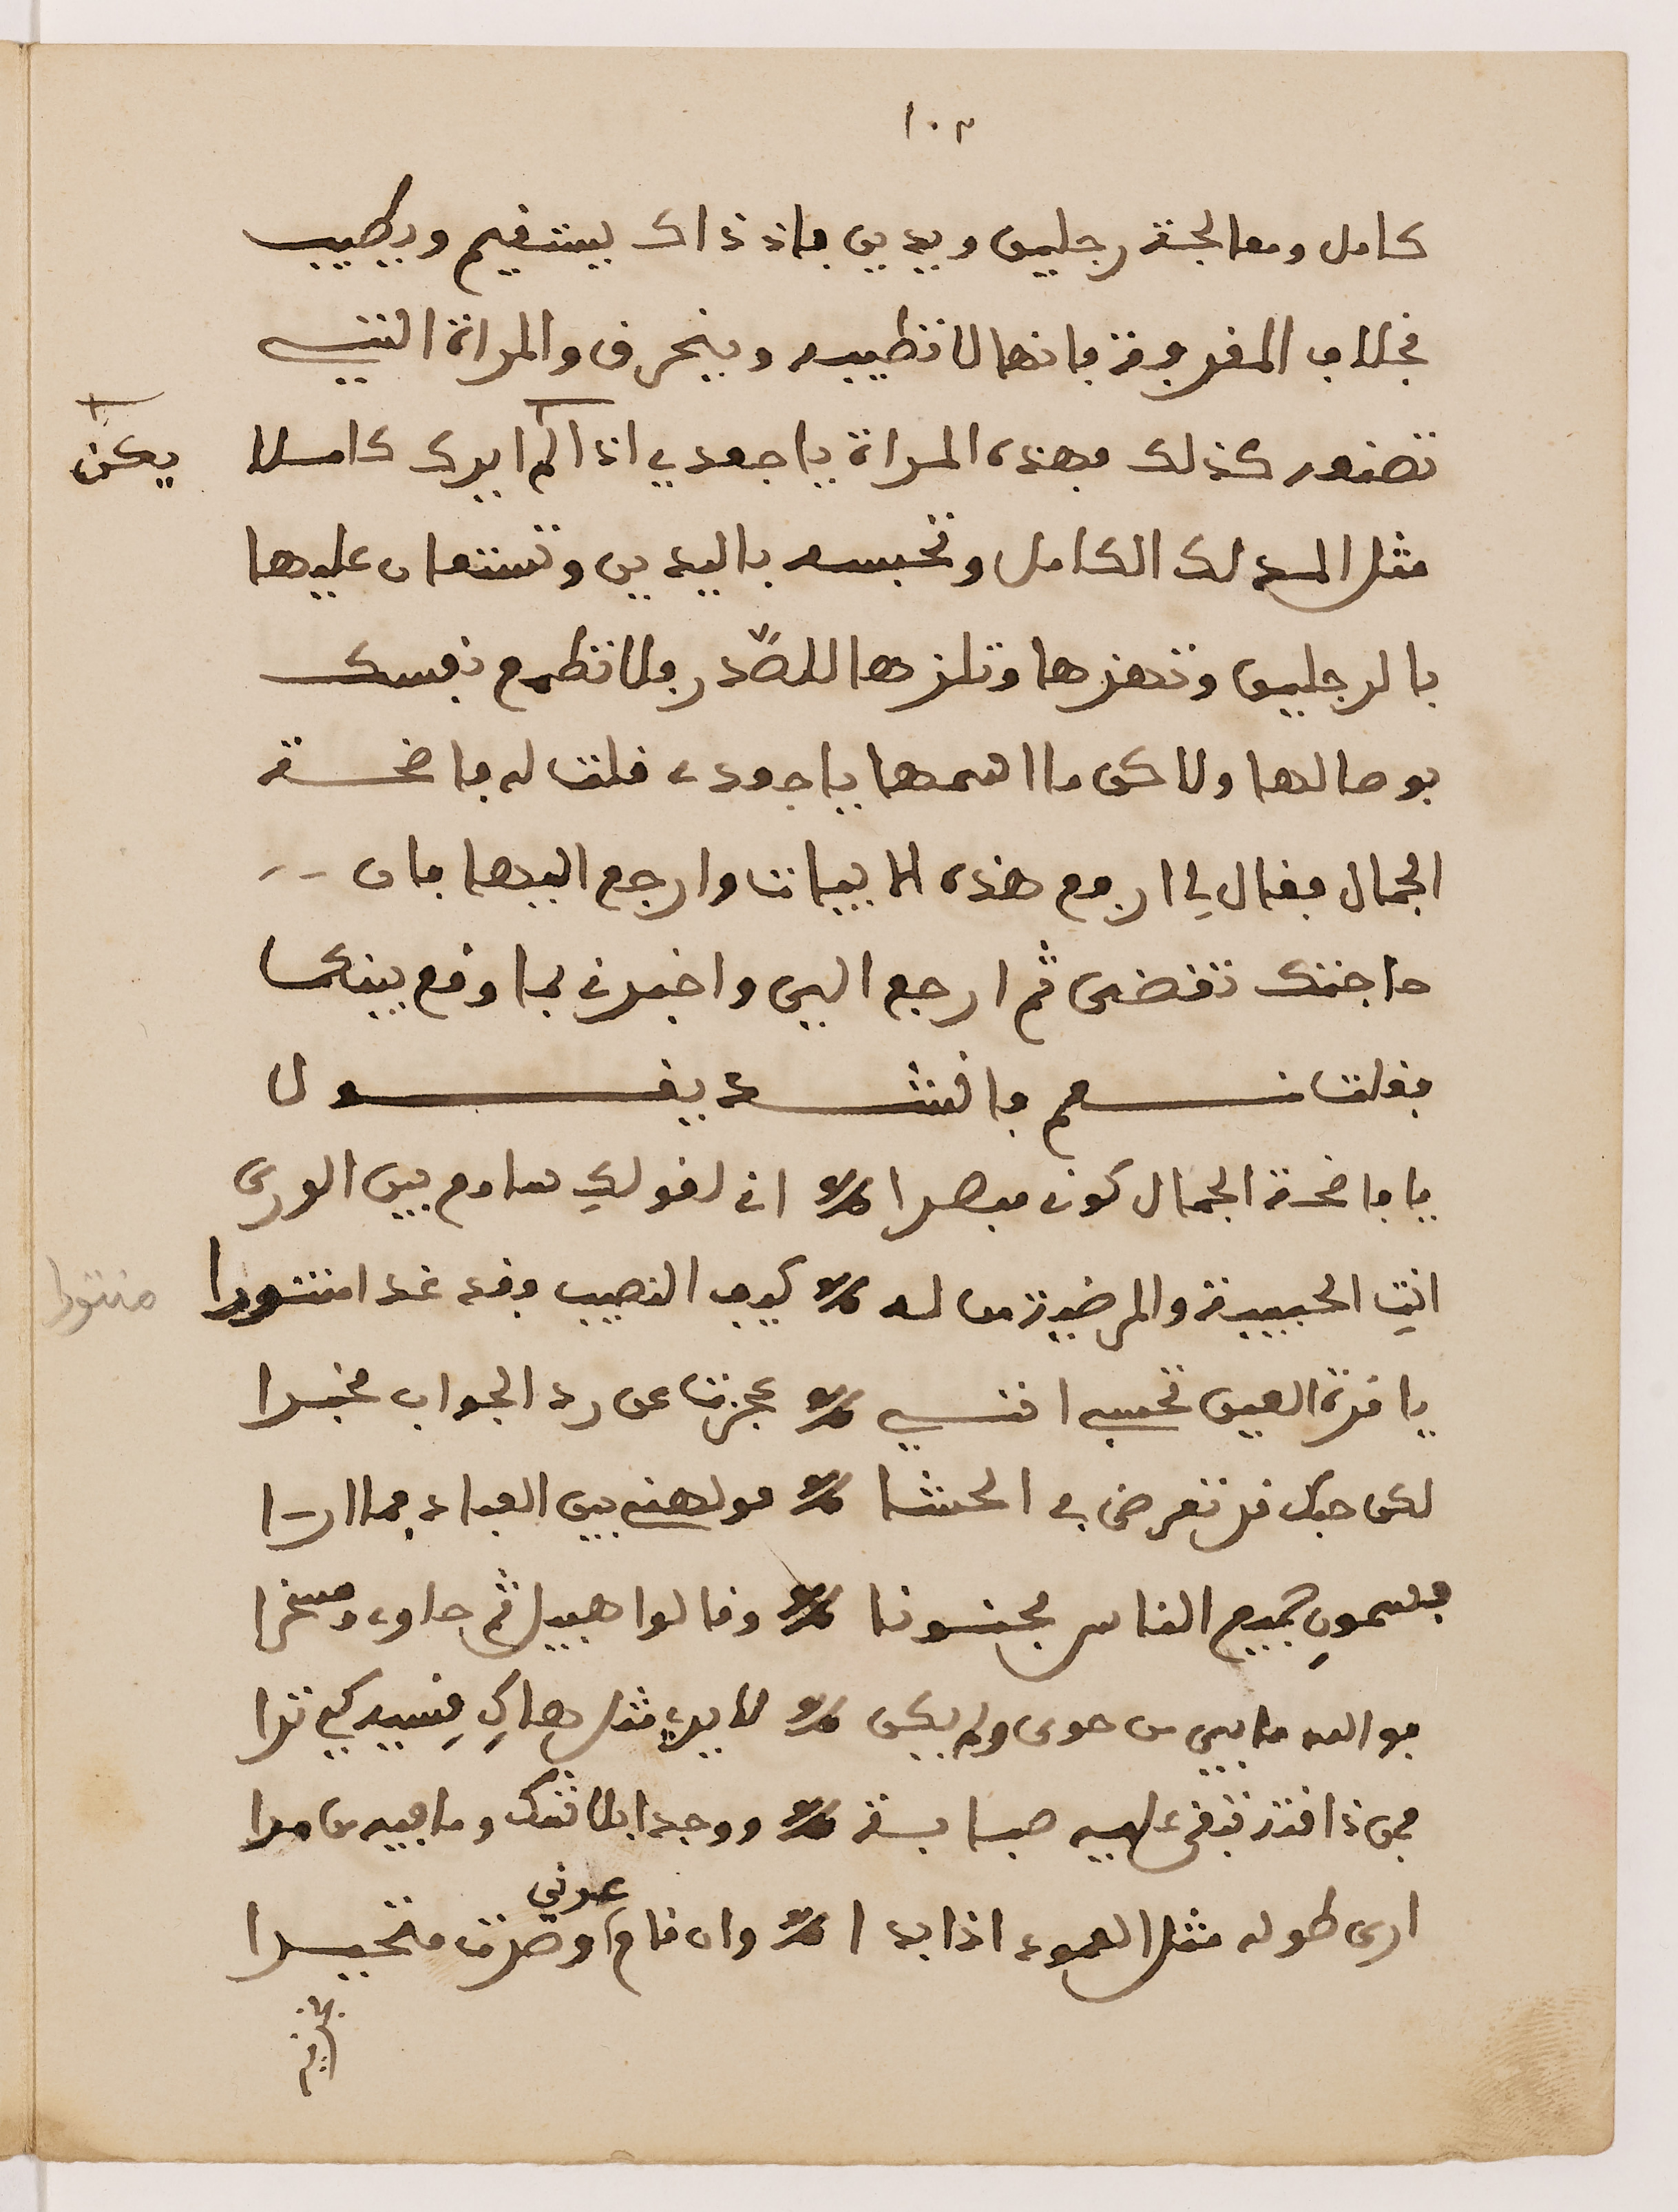 ١٠٣
كامل ومعالجة رجلين ويدين فاذ ذاك يستقيم ويطيب
بخلاف المفروقة فانها لا تطيبه وينحرق والمراة التي
تضور كذلك فهذه المراة يا جعدي اذا لم ايرك كاملا
يكن
مثل المدلك الكامل وتحبسه باليدين وتستعان عليها
بالرجلين وتهزها وتلزها للصّدر ولا تطمع نفسك
بوصالها ولاكن ما اسمها يا جودي قلت له فاضحة
الجمال فقال لي ارفع هذه الابيات وارجع اليها فان
حاجتك تقضى ثم ارجع الي واخبرني بما وقع بينكما
فقلت نعم فانشد يقول
يا فاضحة الجمال كوني مبصرا اني لقولكِ سامع بين الورى
انتِ الحبيبة والمرضية من له كيف النصيب وقد غدا منتورا
منتورا
يا قرة العين تحسب انني عجزت عن رد الجواب مخبرا
لكن حبك قد تعرض في الحشا مولهني بين العباد بما ارا
فيسموني جميع الناس مجنونا وقالوا هبيل ثم حاوي ومسخرا
فوالله ما بي من هوى ولم يكن لايري مثل هاكِ قسيه كي ترا
فمن ذاقته تبقى عليه صبابة ووجدا بلا شك وما فيه من مرا
ارى طوله مثل العمود اذا بدا وان قام عدني اوصرت متحيرا
فخذيه